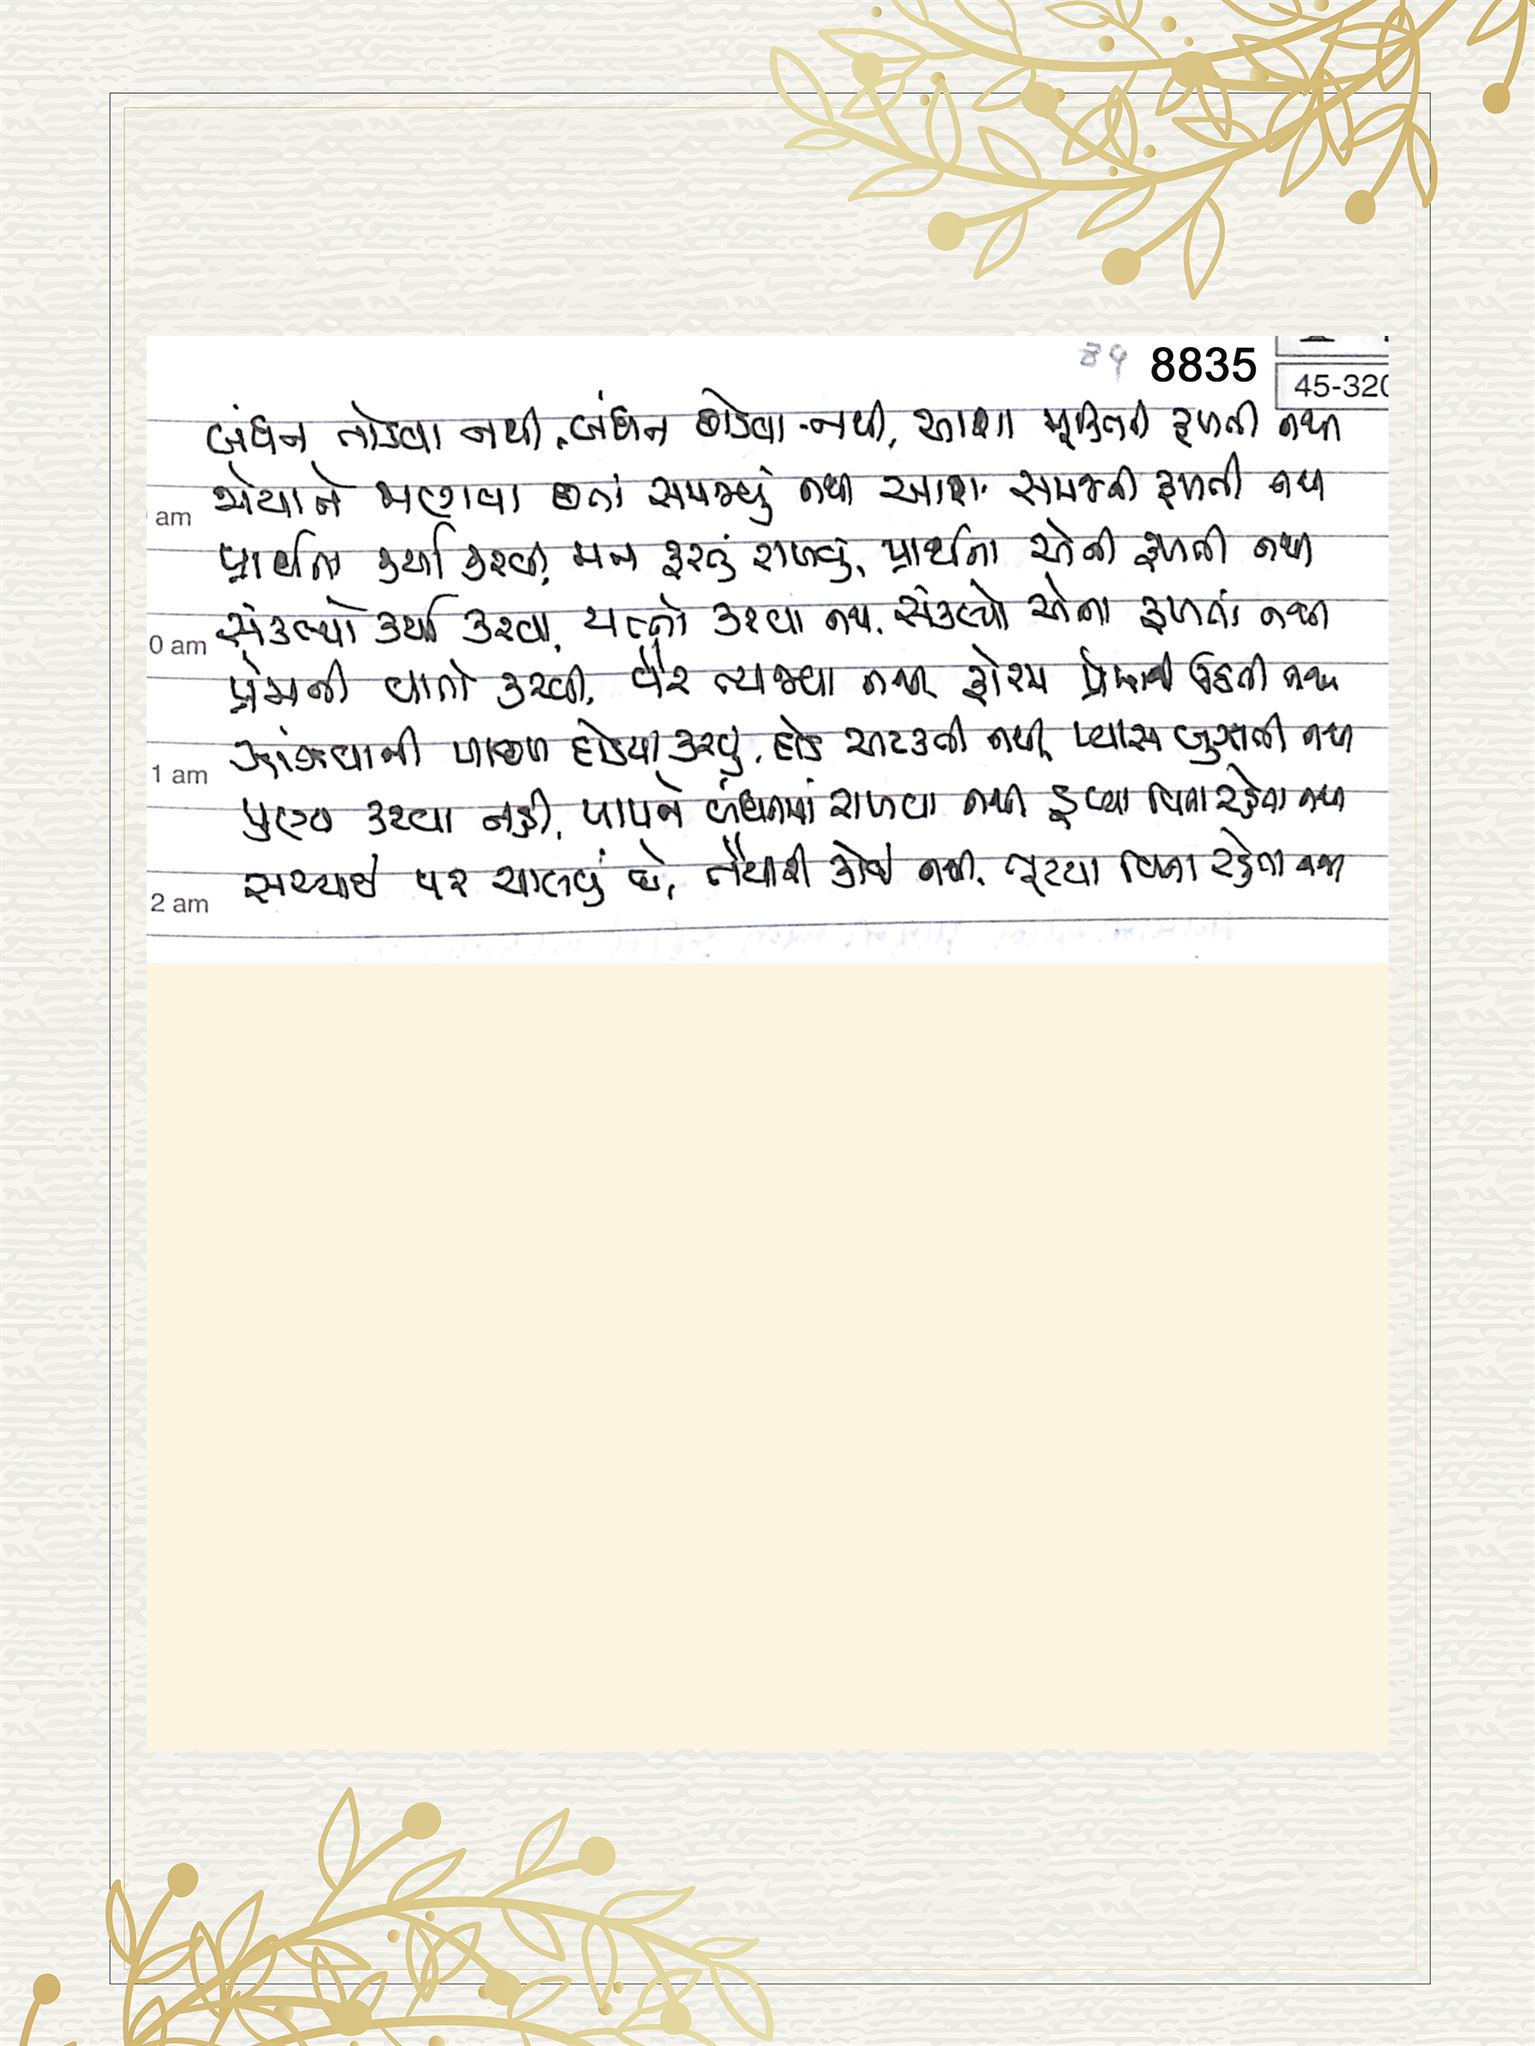 89 8835
45-320
બંધન તોડવા નથી, બંધન છોડવા નથી, આશા મુક્તિની ફળતી નથી
એયાને મણાવા છતાં સમજ્યું નથી આશા સમજની ફળતી નથી
am
પ્રાર્થના કર્યા કરવી, મન ફરતું રાખવું, પ્રાર્થના એની ફળતી નથી
સંકલ્પો કર્યા કરવા, યત્નો કરવા નથી, સંકલ્પો એના ફળતાં નથી
0 am
પ્રેમની વાતો કરવી, વૈર ત્યજ્યા નથી ફોરમ પ્રેમની ઊઠતી નથી
ઝાંઝવાની પાછળ દોડયા કરવું, દોડ અટકતી નથી, પ્યાસ બુઝાતી નથી
1 am
પુણ્ય કરવા નહીં, પાપને બંધનમાં રાખવા નથી ડૂબ્યા વિના રહેતા નથી
સચ્ચાઈ પર ચાલવું છે, તૈયારી કોઈ નથી, તૂટયા વિના રહેતા નથી
2 am